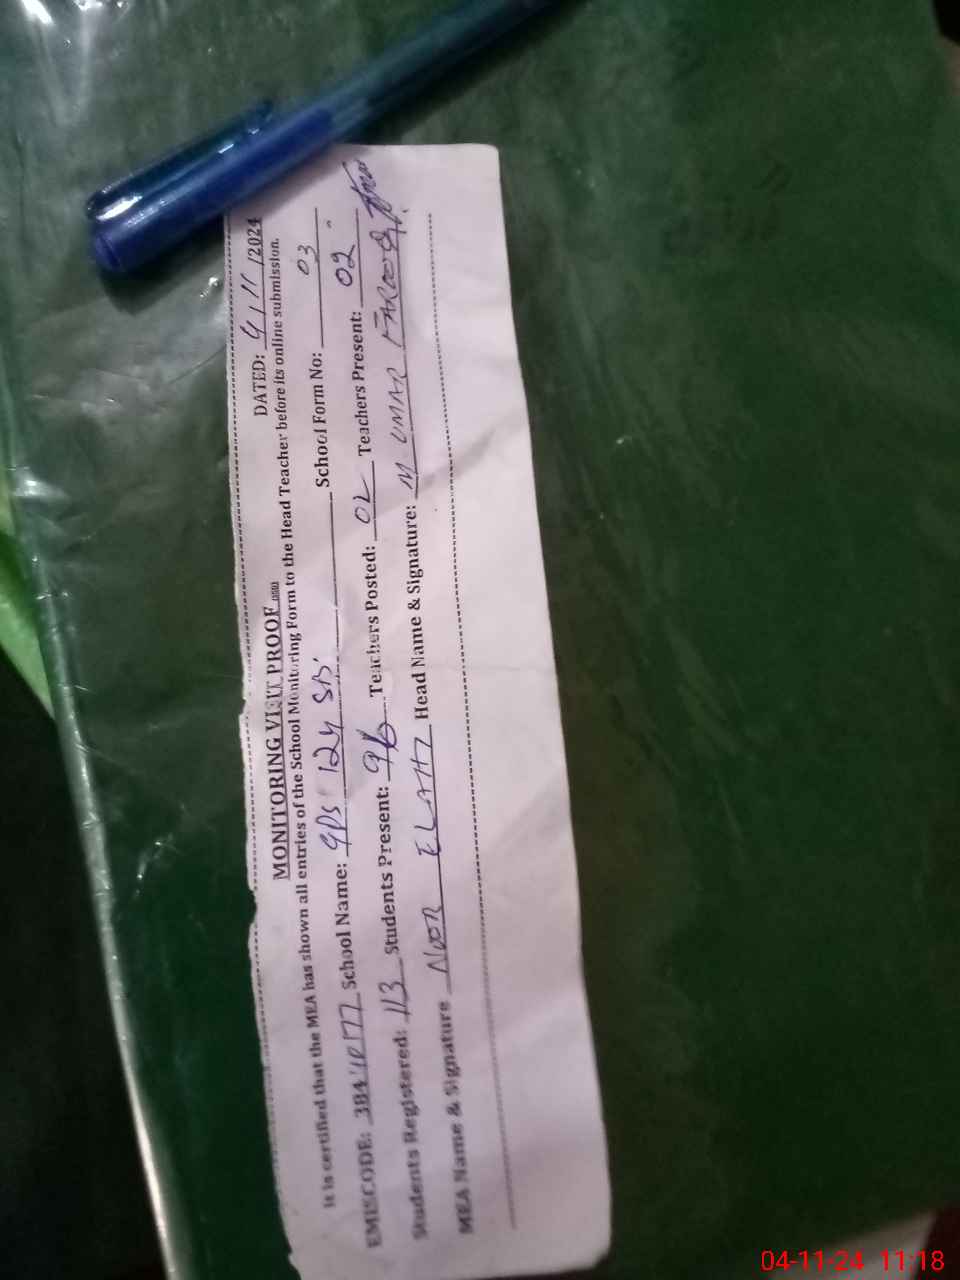 MONITORING VISIT PROOF DATED: 4/11/2024
It is certified that the MEA has shown all entries of the School Monitoring Form to the Head Teacher before its online submission.
EMISCODE: School Name: GPS 124 SB. School Form No: 03
Students Registered: 113 Students Present: 96 Teachers Posted: 02 Teachers Present: 02
MEA Name & Signature NOOR ELAHI Head Name & Signature: M UMAR FAROOQ
04-11-24 11:18